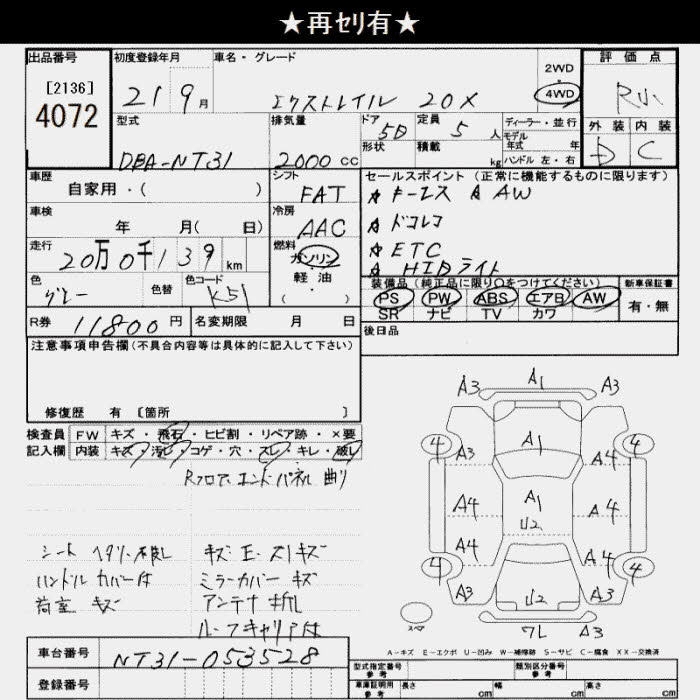 ★再ｾﾘ有★
出品番号
[2136]
4072
初度登録年月
21 9月
車名・グレード
エクストレイル 20X
2WD
4WD
評価点
R小
外装 内装
D C
型式
DBA-NT31
排気量
2000 cc
ドア
5D
形状
定員
5 人
積載
kg
ディーラー・並行
モデル年式 年
ハンドル 左・右
車歴
自家用・( )
シフト
FAT
車検
年 月( 日)
冷房
AAC
走行
20万0千139 km
燃料
ガソリン
軽油
・( )
色
グレー
色替
色コード
K51
R券 11800円
名変期限 月 日
セールスポイント (正常に機能するものに限ります)
★ キーレス ★ AW
★ ドラレコ
★ ETC
★ HIDライト
装備品 (純正品に限り○をつけてください)
PS PW ABS エアB AW
SR ナビ TV カワ
新車保証書
有・無
後日品
注意事項申告欄(不具合内容等は具体的に記入して下さい)
修復歴 有 [箇所 ]
検査員 FW キズ・飛石・ヒビ割・リペア跡・×要
記入欄 内装 キズ・汚レ・コゲ・穴・スレ・キレ・破レ
Rフロア、エンドパネル 曲り
シート ヘタリ・破レ
ハンドル カバー付
荷室 キズ
キズ・E・スリキズ
ミラーカバー キズ
アンテナ 折レ
ルーフキャリア付
A3 A1 A3
4 A3 A1 A4 4
A4 A1 A4
U2
A4
4 4
A3 U2 A3
スペア
ワレ A3
A-キズ E-エクボ U-凹み W-補修跡 S-サビ C-腐食 XX-交換済
車台番号 NT31-053528
登録番号
型式指定番号
参考
類別区分番号
参考
車庫証明用
参考
長さ cm 幅 cm 高さ cm